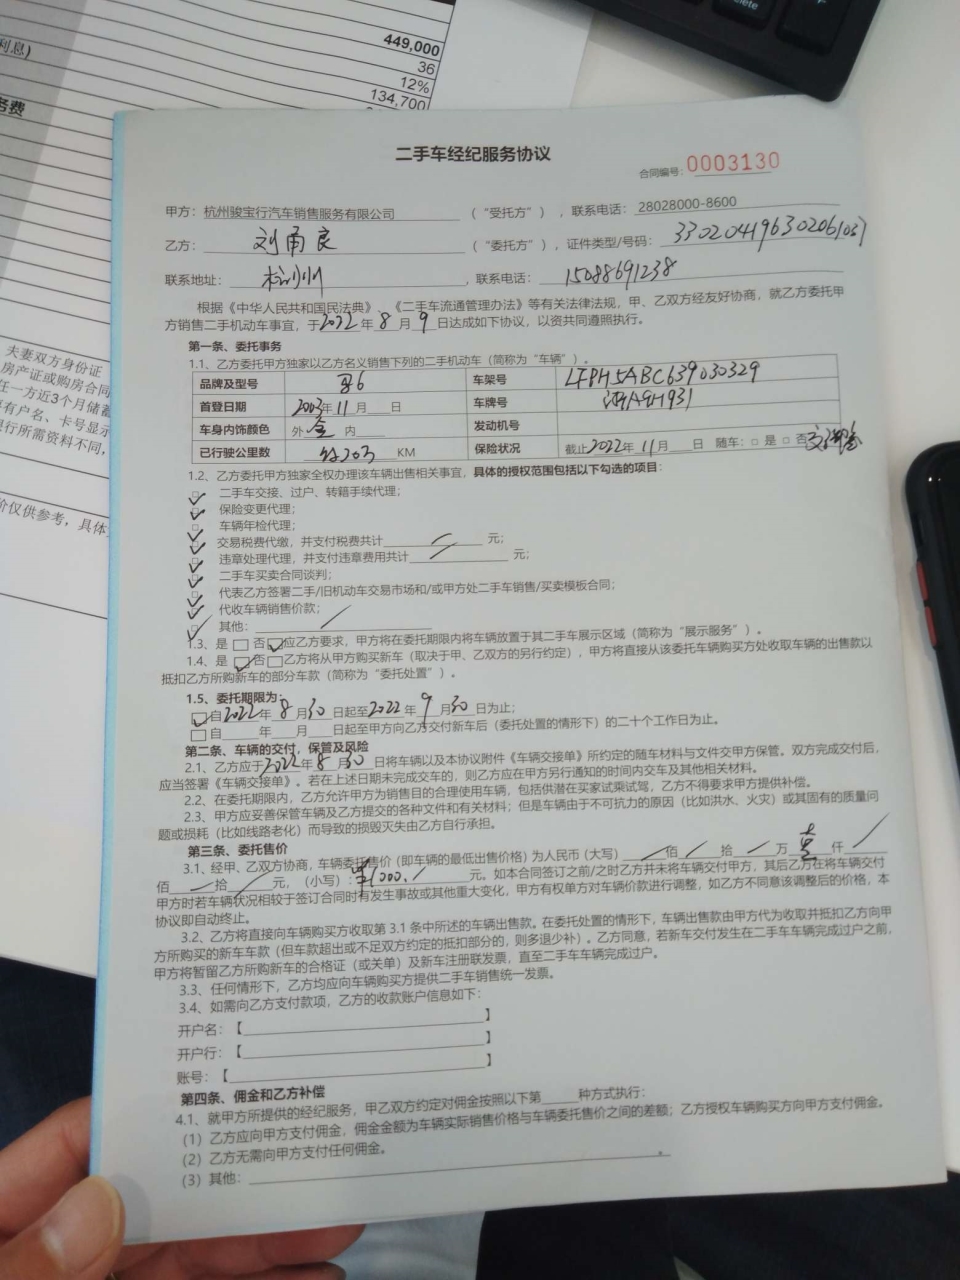 449,000
36
12%
134,700
利息)
务费
夫妻双方身份证
房产证或购房合同
任一方近3个月储蓄
有户名、卡号显示
行所需资料不同，
价仅供参考，具体
二手车经纪服务协议
合同编号: 0003130
甲方: 杭州骏宝行汽车销售服务有限公司 (“受托方”)，联系电话: 28028000-8600
乙方: 刘甬良 (“委托方”)，证件类型/号码:
联系地址: 杭州，联系电话: 15088691238
根据《中华人民共和国民法典》、《二手车流通管理办法》等有关法律法规，甲、乙双方经友好协商，就乙方委托甲
方销售二手机动车事宜，于2022年8月9日达成如下协议，以资共同遵照执行。
第一条、委托事务
1.1、乙方委托甲方独家以乙方名义销售下列的二手机动车（简称为“车辆”）。
品牌及型号 马6 车架号 LFPH5ABC639030329
首登日期 2003年11月 日 车牌号 浙A9H931
车身内饰颜色 外 金 内 发动机号
已行驶公里数 KM 保险状况 截止2022年11月 日 随车: □ 是 □ 否
1.2、乙方委托甲方独家全权办理该车辆出售相关事宜，具体的授权范围包括以下勾选的项目:
二手车交接、过户、转籍手续代理;
保险变更代理;
车辆年检代理;
交易税费代缴，并支付税费共计 元;
违章处理代理，并支付违章费用共计 元;
二手车买卖合同谈判;
代表乙方签署二手/旧机动车交易市场和/或甲方处二手车销售/买卖模板合同;
代收车辆销售价款;
其他:
1.3、是 □ 否 ☑ 应乙方要求，甲方将在委托期限内将车辆放置于其二手车展示区域（简称为“展示服务”）。
1.4、是 ☑ 否 □ 乙方将从甲方购买新车（取决于甲、乙双方的另行约定），甲方将直接从该委托车辆购买方处收取车辆的出售款以
抵扣乙方所购新车的部分车款（简称为“委托处置”）。
1.5、委托期限为:
☑ 自2022年8月30日起至2022年9月30日为止;
□ 自 年 月 日起至甲方向乙方交付新车后（委托处置的情形下）的二十个工作日为止。
第二条、车辆的交付，保管及风险
2.1、乙方应于2022年8月30日将车辆以及本协议附件《车辆交接单》所约定的随车材料与文件交甲方保管。双方完成交付后，
应当签署《车辆交接单》。若在上述日期未完成交车的，则乙方应在甲方另行通知的时间内交车及其他相关材料。
2.2、在委托期限内，乙方允许甲方为销售目的合理使用车辆，包括供潜在买家试乘试驾，乙方不得要求甲方提供补偿。
2.3、甲方应妥善保管车辆及乙方提交的各种文件和有关材料；但是车辆由于不可抗力的原因（比如洪水、火灾）或其固有的质量问
题或损耗（比如线路老化）而导致的损毁灭失由乙方自行承担。
第三条、委托售价
3.1、经甲、乙双方协商，车辆委托售价（即车辆的最低出售价格）为人民币（大写） 佰 拾 万 仟
佰 拾 元，（小写）: 元。如本合同签订之前/之时乙方并未将车辆交付甲方，其后乙方在将车辆交付
甲方时若车辆状况相较于签订合同时有发生事故或其他重大变化，甲方有权单方对车辆价款进行调整，如乙方不同意该调整后的价格，本
协议即自动终止。
3.2、乙方将直接向车辆购买方收取第 3.1 条中所述的车辆出售款。在委托处置的情形下，车辆出售款由甲方代为收取并抵扣乙方向甲
方所购买的新车车款（但车款超出或不足双方约定的抵扣部分的，则多退少补）。乙方同意，若新车交付发生在二手车车辆完成过户之前，
甲方将暂留乙方所购新车的合格证（或关单）及新车注册联发票，直至二手车车辆完成过户。
3.3、任何情形下，乙方均应向车辆购买方提供二手车销售统一发票。
3.4、如需向乙方支付款项，乙方的收款账户信息如下:
开户名:【 】
开户行:【 】
账号:【 】
第四条、佣金和乙方补偿
4.1、就甲方所提供的经纪服务，甲乙双方约定对佣金按照以下第 种方式执行:
(1) 乙方应向甲方支付佣金，佣金金额为车辆实际销售价格与车辆委托售价之间的差额；乙方授权车辆购买方向甲方支付佣金。
(2) 乙方无需向甲方支付任何佣金。
(3) 其他: 。